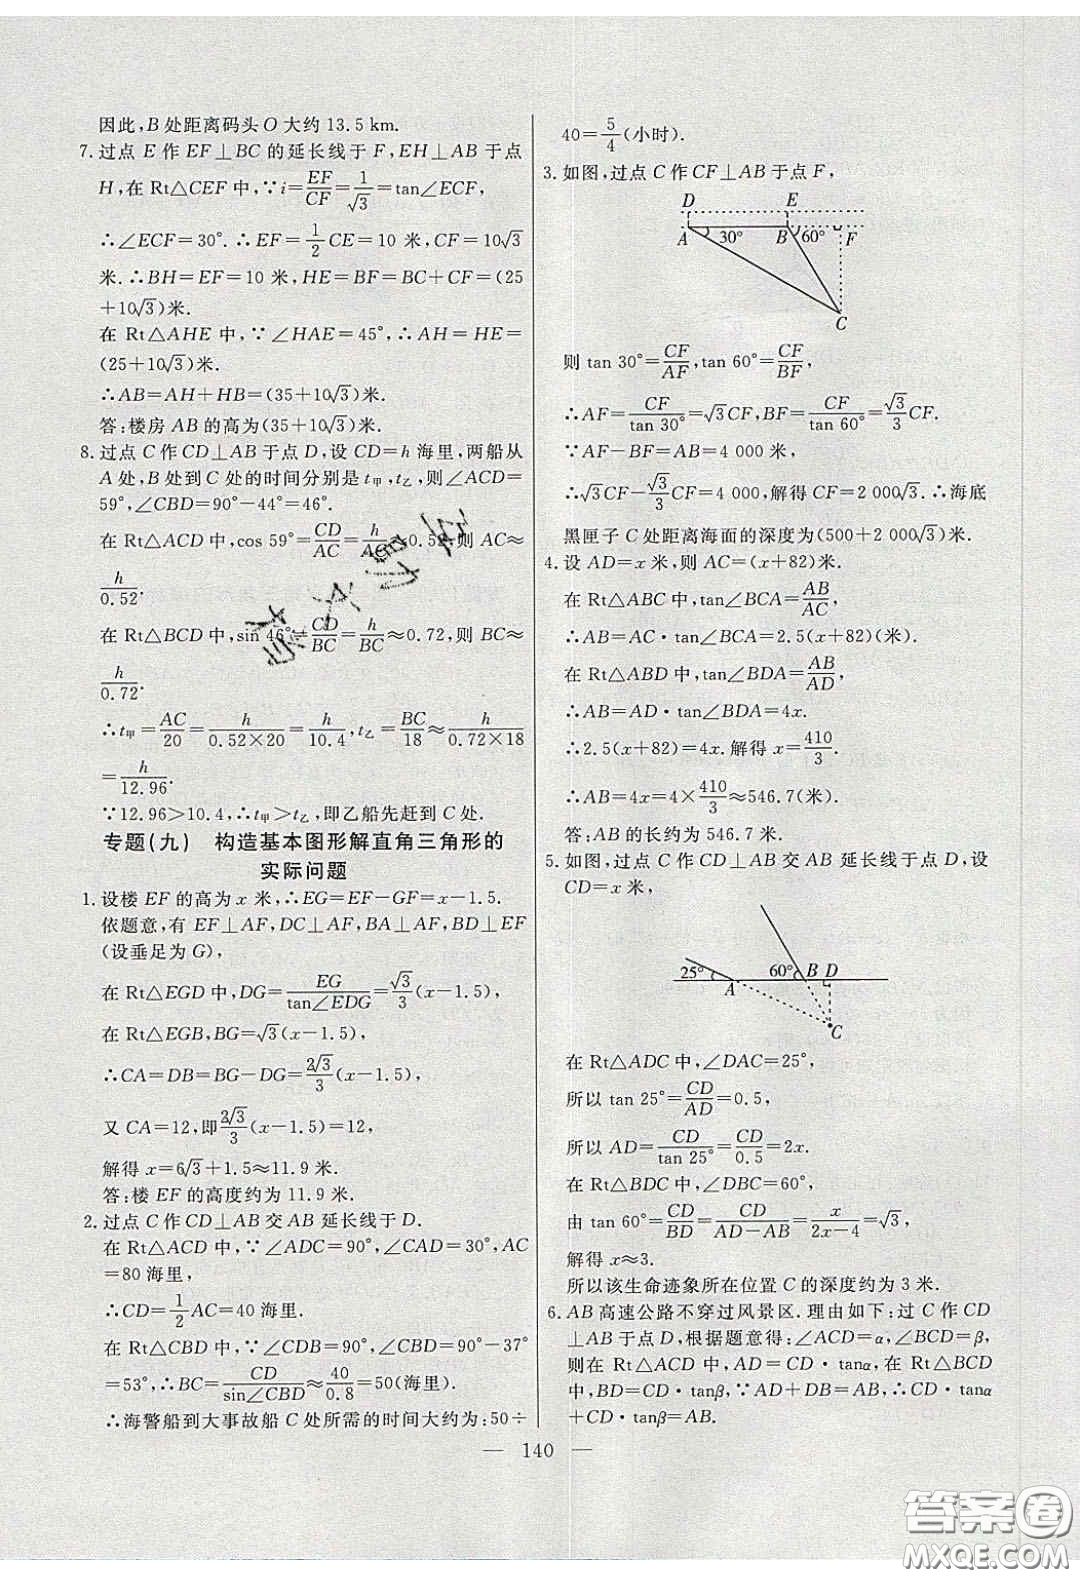 因此,B处距离码头O大约13.5 km.
7. 过点E作EF⊥BC的延长线于F,EH⊥AB于点
H,在Rt△CEF中,∵i=EF/CF=1/√3=tan∠ECF,
∴∠ECF=30°.∴EF=1/2CE=10米,CF=10√3
米.∴BH=EF=10米,HE=BF=BC+CF=(25
+10√3)米.
在Rt△AHE中,∵∠HAE=45°,∴AH=HE=
(25+10√3)米.
∴AB=AH+HB=(35+10√3)米.
答:楼房AB的高为(35+10√3)米.
8. 过点C作CD⊥AB于点D,设CD=h海里,两船从
A处,B处到C处的时间分别是t甲,t乙,则∠ACD=
59°,∠CBD=90°-44°=46°.
在Rt△ACD中,cos 59°=CD/AC=h/AC≈0.52,则AC≈
h/0.52.
在Rt△BCD中,sin 46°=CD/BC=h/BC≈0.72,则BC≈
h/0.72.
∴t甲=AC/20=h/(0.52×20)=h/10.4,t乙=BC/18=h/(0.72×18)
=h/12.96.
∵12.96>10.4,∴t甲>t乙,即乙船先赶到C处.
专题(九) 构造基本图形解直角三角形的
实际问题
1. 设楼EF的高为x米,∴EG=EF-GF=x-1.5.
依题意,有EF⊥AF,DC⊥AF,BA⊥AF,BD⊥EF
(设垂足为G),
在Rt△EGD中,DG=EG/tan∠EDG=√3/3(x-1.5),
在Rt△EGB,BG=√3(x-1.5),
∴CA=DB=BG-DG=2√3/3(x-1.5),
又CA=12,即2√3/3(x-1.5)=12,
解得x=6√3+1.5≈11.9米.
答:楼EF的高度约为11.9米.
2. 过点C作CD⊥AB交AB延长线于D.
在Rt△ACD中,∵∠ADC=90°,∠CAD=30°,AC
=80海里,
∴CD=1/2AC=40海里.
在Rt△CBD中,∵∠CDB=90°,∠CBD=90°-37°
=53°,∴BC=CD/sin∠CBD≈40/0.8=50(海里).
∴海警船到大事故船C处所需的时间大约为:50÷
40=5/4(小时).
3. 如图,过点C作CF⊥AB于点F,
D E
A 30° B 60° F
C
则tan 30°=CF/AF,tan 60°=CF/BF,
∴AF=CF/tan 30°=√3CF,BF=CF/tan 60°=√3/3CF.
∵AF-BF=AB=4 000米,
∴√3CF-√3/3CF=4 000,解得CF=2 000√3.∴海底
黑匣子C处距离海面的深度为(500+2 000√3)米.
4. 设AD=x米,则AC=(x+82)米.
在Rt△ABC中,tan∠BCA=AB/AC,
∴AB=AC·tan∠BCA=2.5(x+82)(米).
在Rt△ABD中,tan∠BDA=AB/AD,
∴AB=AD·tan∠BDA=4x.
∴2.5(x+82)=4x.解得x=410/3.
∴AB=4x=4×410/3≈546.7(米).
答:AB的长约为546.7米.
5. 如图,过点C作CD⊥AB交AB延长线于点D,设
CD=x米,
25° 60° B D
A
C
在Rt△ADC中,∠DAC=25°,
所以tan 25°=CD/AD=0.5,
所以AD=CD/tan 25°=CD/0.5=2x.
在Rt△BDC中,∠DBC=60°,
由tan 60°=CD/BD=CD/(AD-AB)=x/(2x-4)=√3,
解得x≈3.
所以该生命迹象所在位置C的深度约为3米.
6. AB高速公路不穿过风景区.理由如下:过C作CD
⊥AB于点D,根据题意得:∠ACD=α,∠BCD=β,
则在Rt△ACD中,AD=CD·tanα,在Rt△BCD
中,BD=CD·tanβ,∵AD+DB=AB,∴CD·tanα
+CD·tanβ=AB.
— 140 —
答案圈
MXQE.COM